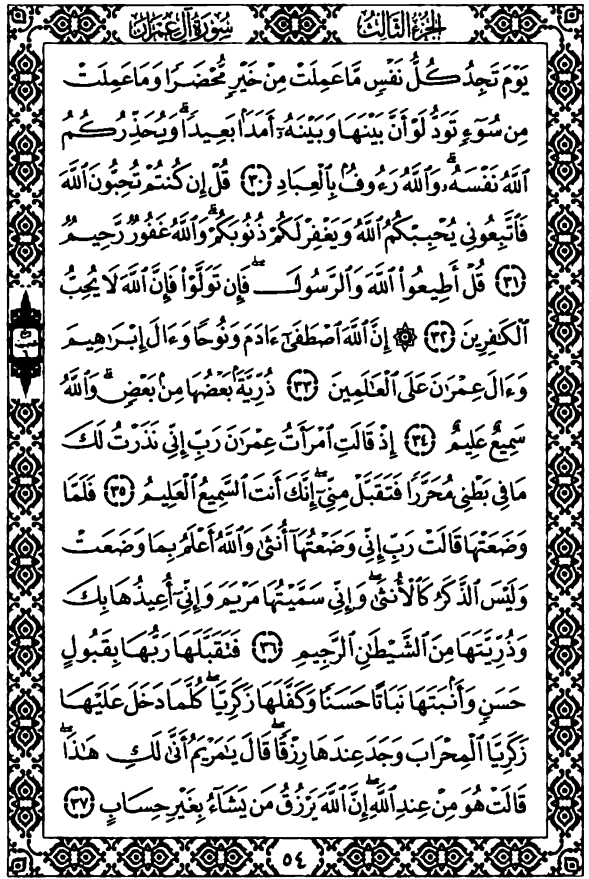 سُورَةُ آلِ عِمْرَانَ الجُزءُ الثَّالِثُ
يَوْمَ تَجِدُ كُلُّ نَفْسٍ مَّا عَمِلَتْ مِنْ خَيْرٍ مُّحْضَرًا وَمَا عَمِلَتْ
مِن سُوٓءٍ تَوَدُّ لَوْ أَنَّ بَيْنَهَا وَبَيْنَهُۥٓ أَمَدَۢا بَعِيدًاۗ وَيُحَذِّرُكُمُ
ٱللَّهُ نَفْسَهُۥۗ وَٱللَّهُ رَءُوفُۢ بِٱلْعِبَادِ ﴿٣٠﴾ قُلْ إِن كُنتُمْ تُحِبُّونَ ٱللَّهَ
فَٱتَّبِعُونِى يُحْبِبْكُمُ ٱللَّهُ وَيَغْفِرْ لَكُمْ ذُنُوبَكُمْۗ وَٱللَّهُ غَفُورٌ رَّحِيمٌ
﴿٣١﴾ قُلْ أَطِيعُوا۟ ٱللَّهَ وَٱلرَّسُولَۖ فَإِن تَوَلَّوْا۟ فَإِنَّ ٱللَّهَ لَا يُحِبُّ
ٱلْكَٰفِرِينَ ﴿٣٢﴾ ۞ إِنَّ ٱللَّهَ ٱصْطَفَىٰٓ ءَادَمَ وَنُوحًا وَءَالَ إِبْرَٰهِيمَ
وَءَالَ عِمْرَٰنَ عَلَى ٱلْعَٰلَمِينَ ﴿٣٣﴾ ذُرِّيَّةَۢ بَعْضُهَا مِنۢ بَعْضٍۗ وَٱللَّهُ
سَمِيعٌ عَلِيمٌ ﴿٣٤﴾ إِذْ قَالَتِ ٱمْرَأَتُ عِمْرَٰنَ رَبِّ إِنِّى نَذَرْتُ لَكَ
مَا فِى بَطْنِى مُحَرَّرًا فَتَقَبَّلْ مِنِّىٓۖ إِنَّكَ أَنتَ ٱلسَّمِيعُ ٱلْعَلِيمُ ﴿٣٥﴾ فَلَمَّا
وَضَعَتْهَا قَالَتْ رَبِّ إِنِّى وَضَعْتُهَآ أُنثَىٰ وَٱللَّهُ أَعْلَمُ بِمَا وَضَعَتْ
وَلَيْسَ ٱلذَّكَرُ كَٱلْأُنثَىٰۖ وَإِنِّى سَمَّيْتُهَا مَرْيَمَ وَإِنِّىٓ أُعِيذُهَا بِكَ
وَذُرِّيَّتَهَا مِنَ ٱلشَّيْطَٰنِ ٱلرَّجِيمِ ﴿٣٦﴾ فَتَقَبَّلَهَا رَبُّهَا بِقَبُولٍ
حَسَنٍ وَأَنۢبَتَهَا نَبَاتًا حَسَنًا وَكَفَّلَهَا زَكَرِيَّاۖ كُلَّمَا دَخَلَ عَلَيْهَا
زَكَرِيَّا ٱلْمِحْرَابَ وَجَدَ عِندَهَا رِزْقًاۖ قَالَ يَٰمَرْيَمُ أَنَّىٰ لَكِ هَٰذَاۖ
قَالَتْ هُوَ مِنْ عِندِ ٱللَّهِۖ إِنَّ ٱللَّهَ يَرْزُقُ مَن يَشَآءُ بِغَيْرِ حِسَابٍ ﴿٣٧﴾
٥٤